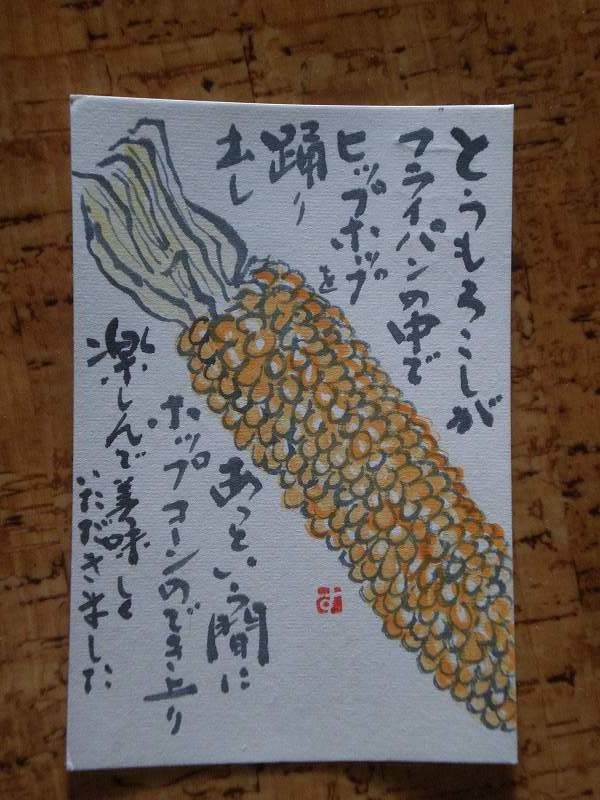 とうもろこしが
フライパンの中で
ヒップホップを
踊り
出し
あっという間に
ポップコーンのでき上り
楽しんで美味しく
いただきました